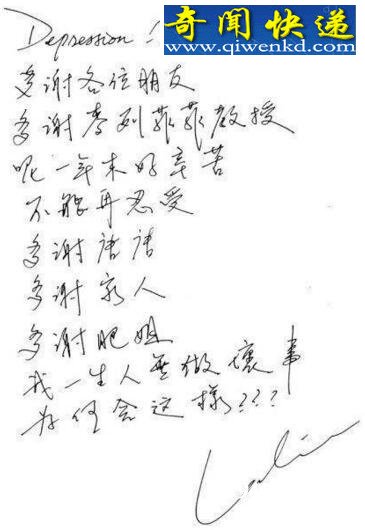 Depression!
奇闻快递
www.qiwenkd.com
多謝各位朋友
多謝李列菲菲教授
呢一年来好辛苦
不能再忍受
多謝唐唐
多謝家人
多謝肥姐
我一生人無做壞事
為何会这樣???